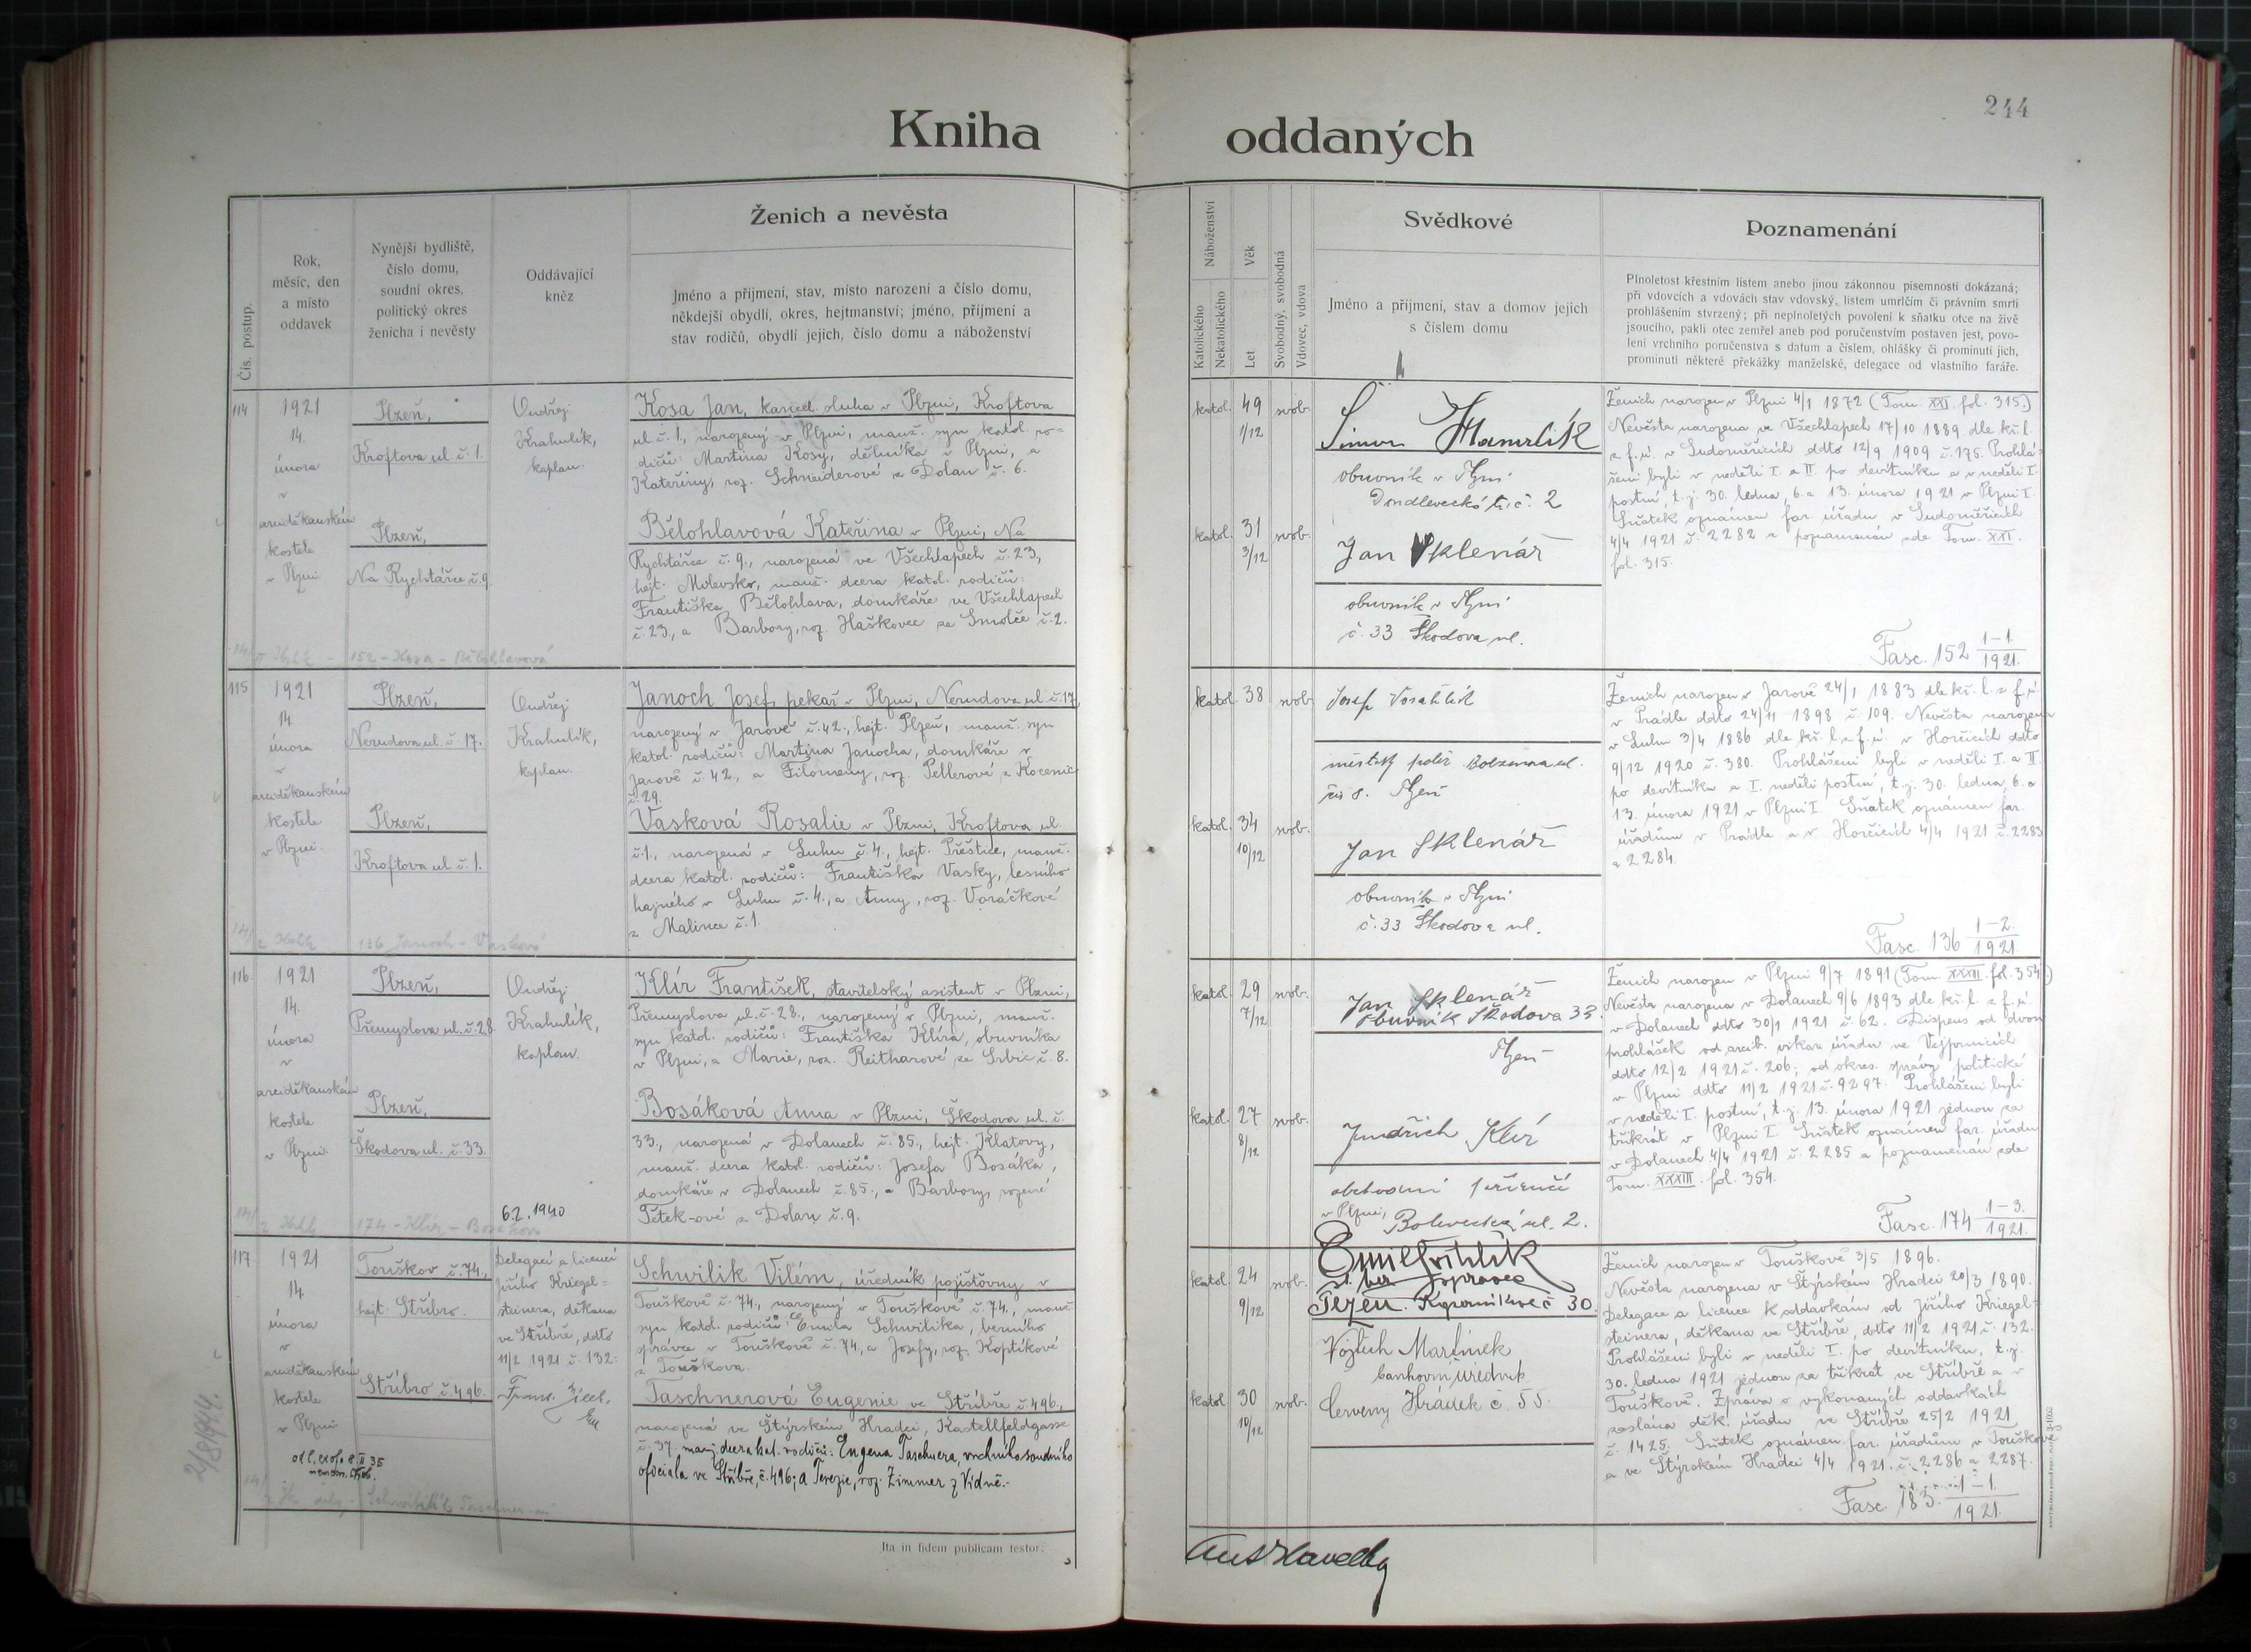 244
Kniha oddaných
Čís. postup.
Rok,
měsíc, den
a místo
oddavek
Nynější bydliště,
číslo domu,
soudní okres,
politický okres
ženicha i nevěsty
Oddávající
kněz
Ženich a nevěsta
Jméno a příjmení, stav, místo narození a číslo domu,
někdejší obydlí, okres, hejtmanství; jméno, příjmení a
stav rodičů, obydlí jejich, číslo domu a náboženství
Náboženství
Katolického
Nekatolického
Věk
Let
Svobodný, svobodná
Vdovec, vdova
Svědkové
Jméno a příjmení, stav a domov jejich
s číslem domu
Poznamenání
Plnoletost křestním listem anebo jinou zákonnou písemností dokázaná;
při vdovcích a vdovách stav vdovský, listem umrlčím či právním smrti
prohlášením stvrzený; při neplnoletých povolení k sňatku otce na živě
jsoucího, pakli otec zemřel aneb pod poručenstvím postaven jest, povo-
lení vrchního poručenstva s datum a číslem, ohlášky či prominutí jich,
prominutí některé překážky manželské, delegace od vlastního faráře.
114
1921
14.
února
v
arciděkanském
kostele
v Plzni.
Plzeň,
Kroftova ul. č. 1.
Plzeň,
Na Rychtářce č. 9
Ondřej
Krahulík,
kaplan.
Kosa Jan, kancel. sluha v Plzni, Kroftova
ul. č. 1., narozený v Plzni, manž. syn katol. ro-
dičů: Martina Kosy, dělníka v Plzni, a
Kateřiny, roz. Schneiderové z Dolan č. 6.
Bělohlavová Kateřina v Plzni, Na
Rychtářce č. 9., narozená ve Všechlapech č. 23,
hejt. Milevsko, manž. dcera katol. rodičů:
Františka Bělohlava, domkáře ve Všechlapech
č. 23, a Barbory, roz. Haškovec ze Smolče č. 2.
152 - Kosa - Bělohlavová
katol. 49 1/12 svob.
katol. 31 3/12 svob.
Šimon Hamrlík
obuvník v Plzni
č. 2
Jan Sklenář
obuvník v Plzni
č. 33 Škodova ul.
Ženich narozen v Plzni 4/1 1872 (Tom. XXI. fol. 315.)
Nevěsta narozena ve Všechlapech 17/10 1889 dle kř. l.
z f. ú. v Sudoměřicích ddto 12/9 1909 č. 175. Prohlá-
šeni byli v neděli I. a II. po devítníku a v neděli I.
postní, t. j. 30. ledna, 6. a 13. února 1921 v Plzni I.
Sňatek oznámen far. úřadu v Sudoměřicích
4/4 1921 č. 2282 a poznamenán zde Tom. XXI.
fol. 315.
Fasc. 152 1-1. 1921.
115
1921
14
února
v
arciděkanském
kostele
v Plzni.
Plzeň,
Nerudova ul. č. 17.
Plzeň,
Kroftova ul č. 1.
Ondřej
Krahulík,
kaplan.
Janoch Josef, pekař v Plzni, Nerudova ul. č. 17,
narozený v Jarově č. 42., hejt. Plzeň, manž. syn
katol. rodičů: Martina Janocha, domkáře v
Jarově č. 42, a Filomeny, roz. Pellerové z Kocenic
č. 29.
Vasková Rosalie v Plzni, Kroftova ul.
č. 1., narozená v Luhu č. 4., hejt. Přeštice, manž.
dcera katol. rodičů: Františka Vasky, lesního
hajného v Luhu č. 4., a Anny, roz. Voráčkové
z Malince č. 1.
136 Janoch - Vasková
katol. 38 svob.
katol. 34 10/12 svob.
Josef
městský polír Bolzanova ul.
čís 8. Plzeň
Jan Sklenář
obuvník v Plzni
č. 33 Škodova ul.
Ženich narozen v Jarově 24/1 1883 dle kř. l. z f. ú.
v Prádle ddto 24/11 1898 č. 109. Nevěsta narozena
v Luhu 3/4 1886 dle kř. l. z f. ú. v Horčicích ddto
9/12 1920 č. 380. Prohlášeni byli v neděli I. a II.
po devítníku a I. neděli postní, t. j. 30. ledna, 6. a
13. února 1921 v Plzni I. Sňatek oznámen far.
úřadům v Prádle a v Horčicích 4/4 1921 č. 2283
a 2284.
Fasc. 136 1-2. 1921.
116
1921
14.
února
v
arciděkanském
kostele
v Plzni.
Plzeň,
Přemyslova ul. č. 28
Plzeň,
Škodova ul. č. 33.
Ondřej
Krahulík,
kaplan.
6.2.1940
Klír František, stavitelský asistent v Plzni,
Přemyslova ul. č. 28., narozený v Plzni, manž.
syn katol. rodičů: Františka Klíra, obuvníka
v Plzni, a Marie, roz. Reitharové ze Srbic č. 8.
Bosáková Anna v Plzni, Škodova ul. č.
33., narozená v Dolanech č. 85., hejt. Klatovy,
manž. dcera katol. rodičů: Josefa Bosáka,
domkáře v Dolanech č. 85., a Barbory, rozené
Tetek-ové z Dolan č. 9.
174 - Klír - Bosáková
katol. 29 7/12 svob.
katol. 27 8/12 svob.
Jan Sklenář
Obuvník Škodova 33.
Plzeň
Jindřich Klír
obchodní příručí
v Plzni, Bolevecká ul. 2.
Ženich narozen v Plzni 9/7 1891 (Tom. XXXIII. fol. 354)
Nevěsta narozena v Dolanech 9/6 1893 dle kř. l. z f. ú.
v Dolanech ddto 30/1 1921 č. 62. Dispens od dvou
prohlášek od arcib. vikar. úřadu ve Vejprnicích
ddto 12/2 1921 č. 206; od okres. správy politické
v Plzni ddto 11/2 1921 č. 9297. Prohlášeni byli
v neděli I. postní, t. j. 13. února 1921 jednou za
třikrát v Plzni I. Sňatek oznámen far. úřadu
v Dolanech 4/4 1921 č. 2285 a poznamenán zde
Tom. XXXIII. fol. 354.
Fasc. 174 1-3. 1921.
117.
1921
14
února
v
arciděkanském
kostele
v Plzni
Touškov č. 74.,
hejt. Stříbro.
Stříbro č. 496.
Delegací a licencí
Jiřího Kriegel-
steinera, děkana
ve Stříbře, ddto
11/2 1921 č. 132:
Schwilik Vilém, úředník pojišťovny v
Touškově č. 74., narozený v Touškově č. 74., manž.
syn katol. rodičů: Emila Schwilika, berního
správce v Touškově č. 74, a Josefy, roz. Koptíkové
z Touškova.
Taschnerová Eugenie ve Stříbře č. 496,
narozená ve Štýrském Hradci, Kastellfeldgasse
č. 37. manž. dcera kat. rodičů: Eugena Taschnera, vrchního soudního
oficiála ve Stříbře, č. 496; a Terezie, roz. Zimmer z Vídně.-
2/8 1944.
katol. 24 9/12 svob.
katol. 30 10/12 svob.
Emil
správce
Plzeň. Koperníkova č 30.
Vojtěch Martínek
bankovní úředník
Červený Hrádek č. 55.
Ženich narozen v Touškově 3/5 1896.
Nevěsta narozena v Štýrském Hradci 20/3 1890.
Delegace a licence k oddavkám od Jiřího Kriegel-
steinera, děkana ve Stříbře, ddto 11/2 1921 č. 132.
Prohlášeni byli v neděli I. po devítníku, t. j.
30. ledna 1921 jednou za třikrát ve Stříbře a v
Touškově. Zpráva o vykonaných oddavkách
zaslána děk. úřadu ve Stříbře 25/2 1921
č. 1425. Sňatek oznámen far. úřadům v Touškově
a ve Štýrském Hradci 4/4 1921. č. 2286 a 2287.
Fasc. 183. 1-1. 1921.
Ita in fidem publicam testor: